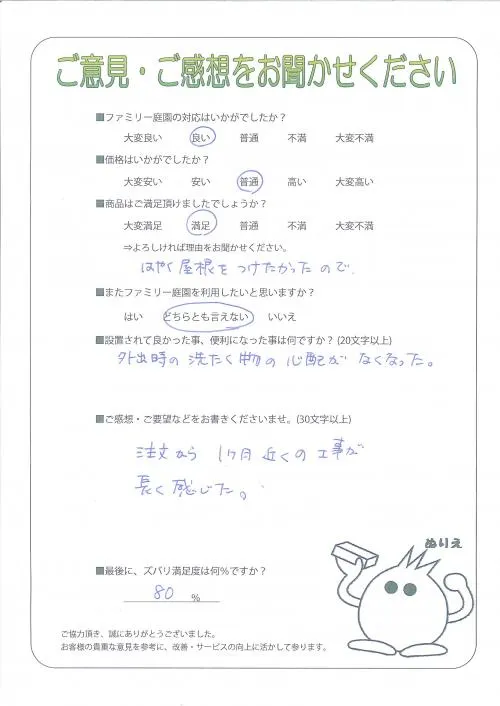 ご意見・ご感想をお聞かせください
■ファミリー庭園の対応はいかがでしたか？
大変良い 良い 普通 不満 大変不満
■価格はいかがでしたか？
大変安い 安い 普通 高い 大変高い
■商品はご満足頂けましたでしょうか？
大変満足 満足 普通 不満 大変不満
⇒よろしければ理由をお聞かせください。
はやく屋根をつけたかったので、
■またファミリー庭園を利用したいと思いますか？
はい どちらとも言えない いいえ
■設置されて良かった事、便利になった事は何ですか？(20文字以上)
外出時の洗たく物の心配がなくなった。
■ご感想・ご要望などをお書きくださいませ。(30文字以上)
注文から1ヶ月近くの工事が
長く感じた。
ぬりえ
■最後に、ズバリ満足度は何％ですか？
80 %
ご協力頂き、誠にありがとうございました。
お客様の貴重な意見を参考に、改善・サービスの向上に活かして参ります。